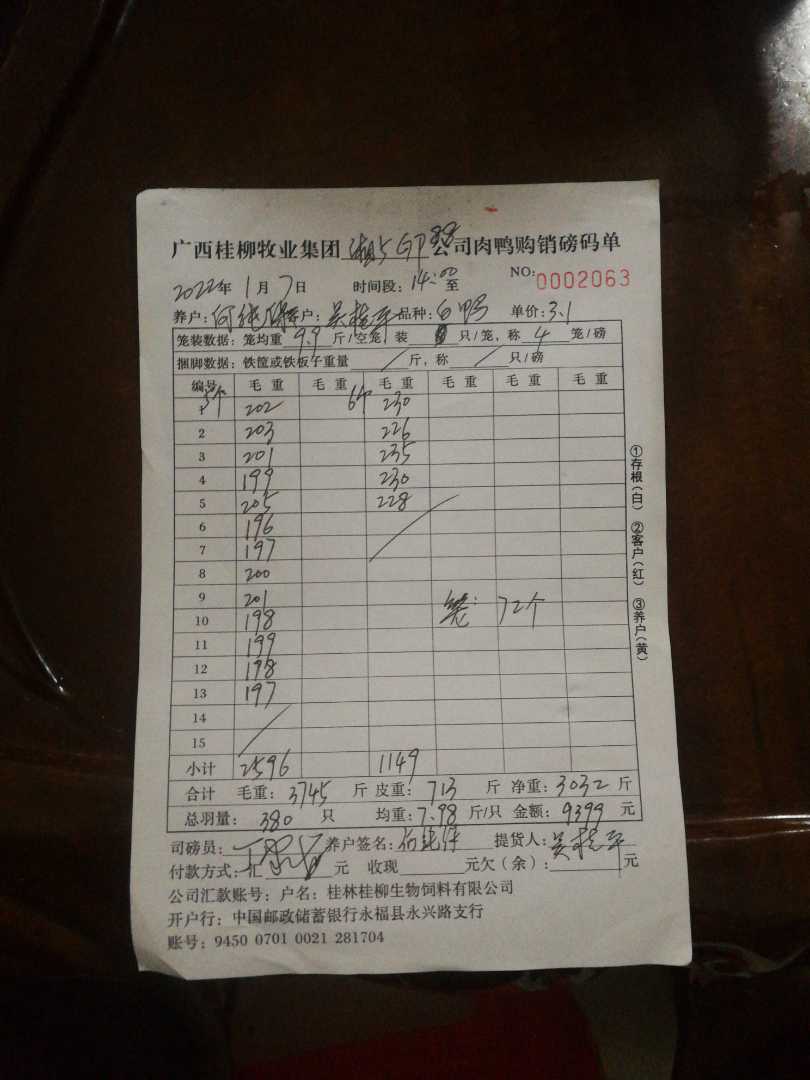 广西桂柳牧业集团 公司肉鸭购销磅码单
2022年 1月 7日 时间段：14:00至 NO：0002063
养户：何 客户：吴 品种：白鸭 单价：3.1
笼装数据：笼均重 9.9 斤/空笼，装 只/笼，称 4 笼/磅
捆脚数据：铁筐或铁板子重量 / 斤，称 / 只/磅
编号 毛重 毛重 毛重 毛重 毛重 毛重
5个 6个
1 202 230
2 203 226
3 201 235
4 199 230
5 205 228
6 196
7 197
8 200
9 201
10 198 笼：72个
11 199
12 198
13 197
14
15
小计 2596 1149
合计 毛重：3745 斤 皮重：713 斤 净重：3032 斤
总羽量：380 只 均重：7.98 斤/只 金额：9399 元
司磅员： 养户签名：何 提货人：吴
付款方式：汇 元 收现 元欠（余）： 元
公司汇款账号：户名：桂林桂柳生物饲料有限公司
开户行：中国邮政储蓄银行永福县永兴路支行
账号：9450 0701 0021 281704
①存根（白） ②客户（红） ③养户（黄）